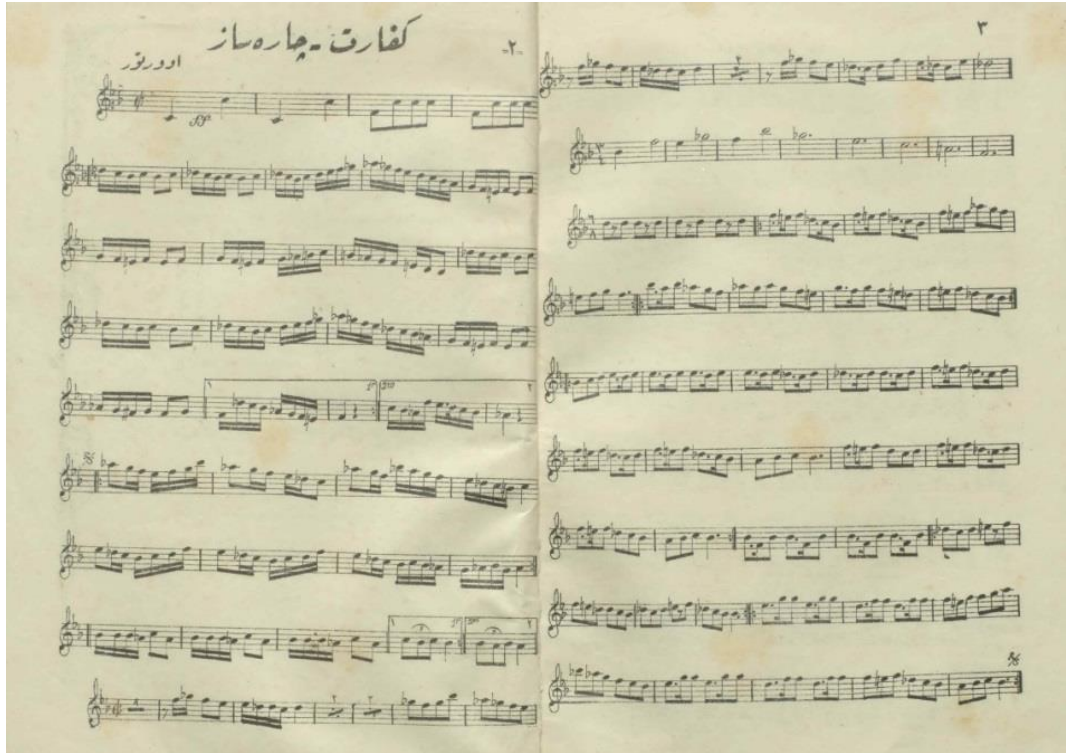 كفارت - چاره ساز
-٢-
اوورتور
٣